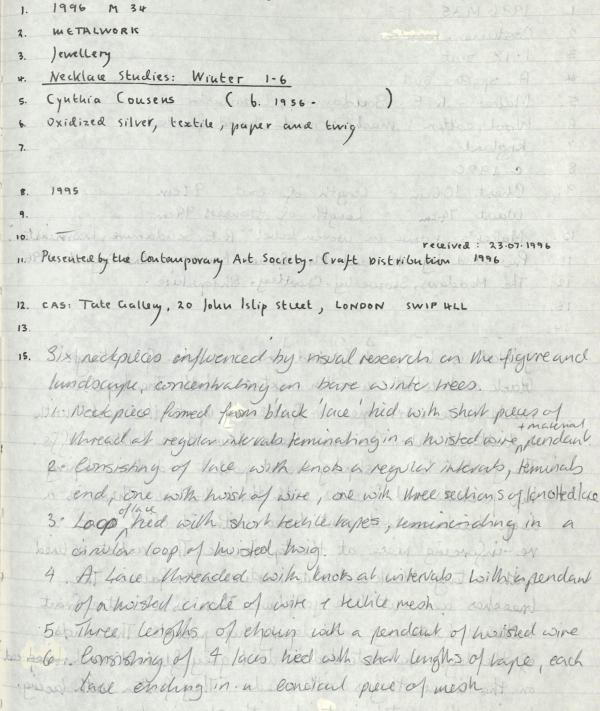 1. 1996 M 34
2. METALWORK
3. Jewellery
4. Necklace Studies: Winter 1-6
5. Cynthia Cousens (b. 1956 - )
6. Oxidized silver, textile, paper and twig
7.
8. 1995
9.
10. —
received: 23.07.1996
11. Presented by the Contemporary Art Society - Craft Distribution 1996
12. CAS: Tate Gallery, 20 John Islip Street, LONDON SW1P 4LL
13.
15. Six neckpieces influenced by visual research on the figure and
landscape, concentrating on bare winter trees.
1. Neckpiece formed from black 'lace' tied with short pieces of
thread at regular intervals teminating in a twisted wire + material pendant
2. Consisting of lace with knots a regular intervals,
end, one with twist of wire, one with three sections of knotted lace
3. Loop of lace tied with short textile tapes, in a
circular loop of twisted twig.
4. A lace threaded with knots at intervals with a pendant
of a twisted circle of wire + textile mesh
5. Three lengths of with a pendant of twisted wire
6. Consisting of 4 laces tied with short lengths of tape, each
lace ending in a conical piece of mesh